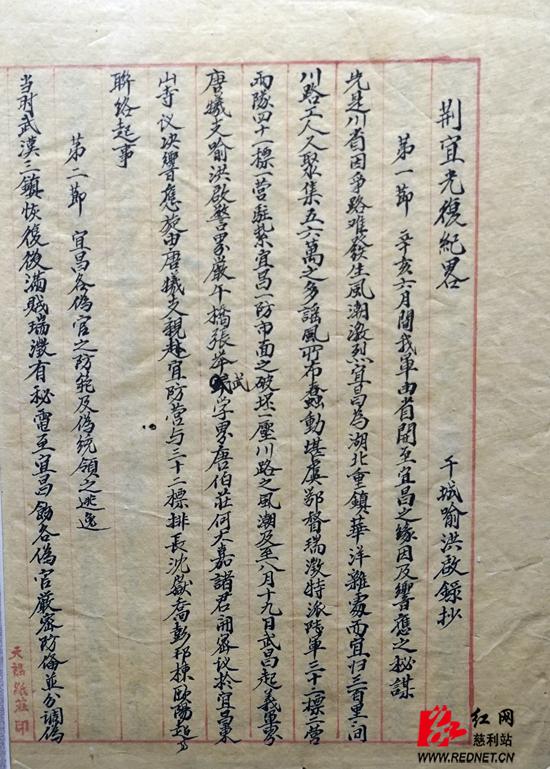 荆宜光復紀畧
干城喻洪啟錄抄
第一節 辛亥六月間我軍由省開至宜昌之緣因及響應之秘謀
先是川省因爭路难發生風潮激烈宜昌為湖北重鎮華洋雜處而宜归三百里间
川路工人又聚集五六萬之多謡風所布蠢動堪虞鄂督瑞澂特派陸軍三十二標一營
两隊四十一標一營駐紮宜昌一防市面之破坏一壓川路之風潮及至八月十九日武昌起義軍界
唐犧支喻洪啟警界嚴午橋張举武学界唐伯莊何大嘉諸君開密议於宜昌東
山寺议决響應並由唐犧支親赴宜防營与三十二標排長沈嶽喬彭邦棟歐陽超等
聯絡起事
第二節 宜昌各偽官之防範及偽統領之逃逸
当时武漢三鎮恢復後滿賊瑞澂有秘電至宜昌飭各偽官嚴密防備並分调偽
天福紙莊印
红网
慈利站
WWW.REDNET.CN